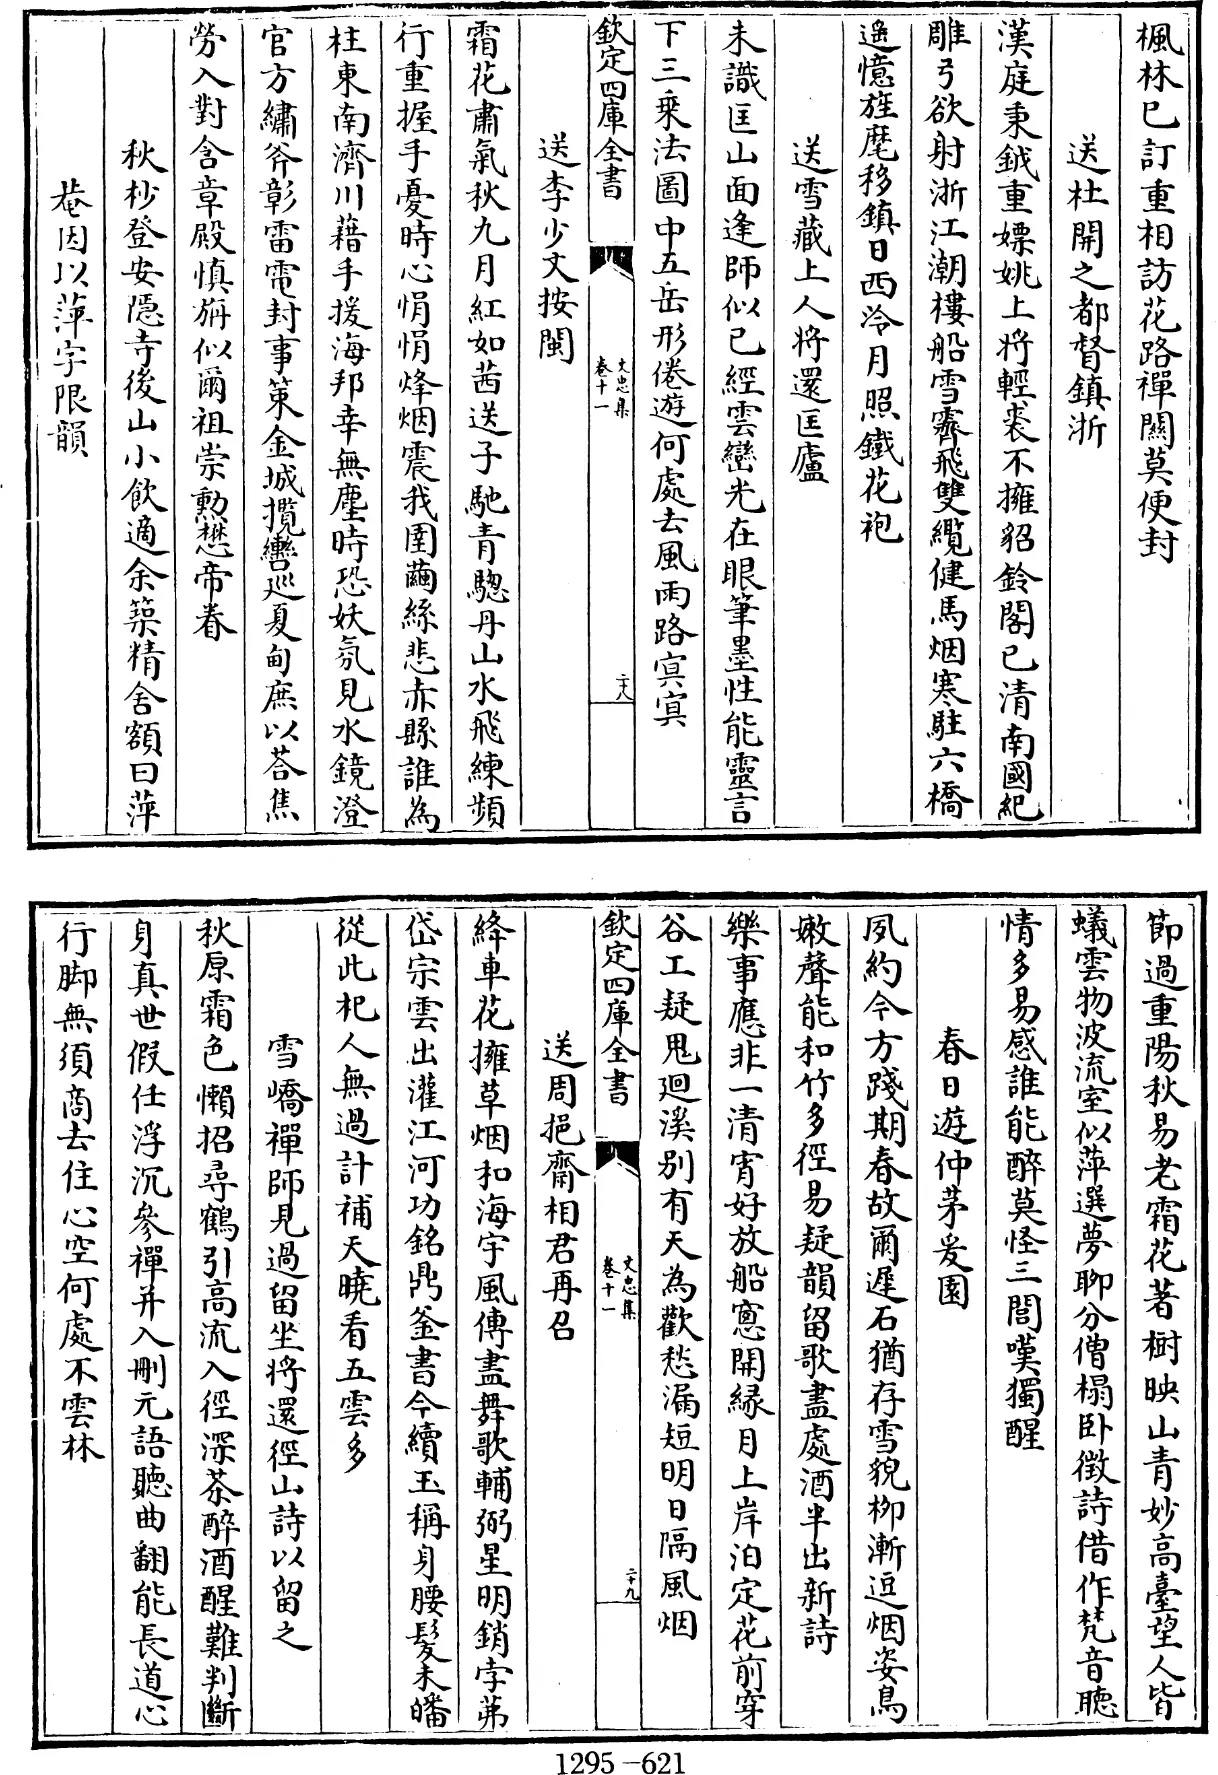 楓林已訂重相訪花路禪關莫便封
送杜開之都督鎮浙
漢庭秉鉞重嫖姚上將輕裘不擁貂鈴閣已清南國紀
雕弓欲射浙江潮樓船雪霽飛雙纜健馬烟寒駐六橋
遥憶旌麾移鎮日西泠月照鐵花袍
送雪藏上人將還匡廬
未識匡山面逢師似已經雲巒光在眼筆墨性能靈言
下三乗法圖中五岳形倦遊何處去風雨路㝠㝠
欽定四庫全書
文忠集
卷十一
二十八
送李少文按閩
霜花肅氣秋九月紅如茜送子馳青驄丹山水飛練頻
行重握手憂時心悁悁烽烟震我圉繭絲悲赤縣誰為
柱東南濟川藉手援海邦幸無塵時恐妖氛見水鏡澄
官方繡斧彰雷電封事策金城攬轡巡夏甸庶以荅焦
勞入對含章殿慎旃似爾祖崇勲懋帝眷
秋杪登安隱寺後山小飲適余築精舍額曰萍
菴因以萍字限韻
節過重陽秋易老霜花著樹映山青妙高臺望人皆
蟻雲物波流室似萍選夢聊分僧榻卧徴詩借作梵音聽
情多易感誰能醉莫怪三閭嘆獨醒
春日遊仲茅爰園
夙約今方踐期春故爾遲石猶存雪貌栁漸逗烟姿鳥
嫩聲能和竹多徑易疑韻留歌盡處酒半出新詩
樂事應非一清宵好放船窻開緣月上岸泊定花前穿
谷工疑鬼迴溪别有天為歡愁漏短明日隔風烟
欽定四庫全書
文忠集
卷十一
二十九
送周挹齋相君再召
絳車花擁草烟和海宇風傳盡舞歌輔弼星明銷孛茀
岱宗雲出灌江河功銘鼎釡書今續玉稱身腰髮未皤
從此杞人無過計補天曉看五雲多
雪嶠禪師見過留坐將還徑山詩以留之
秋原霜色懶招尋鶴引高流入徑深茶醉酒醒難判斷
身真世假任浮沉參禪并入刪元語聽曲翻能長道心
行脚無須商去住心空何處不雲林
1295-621